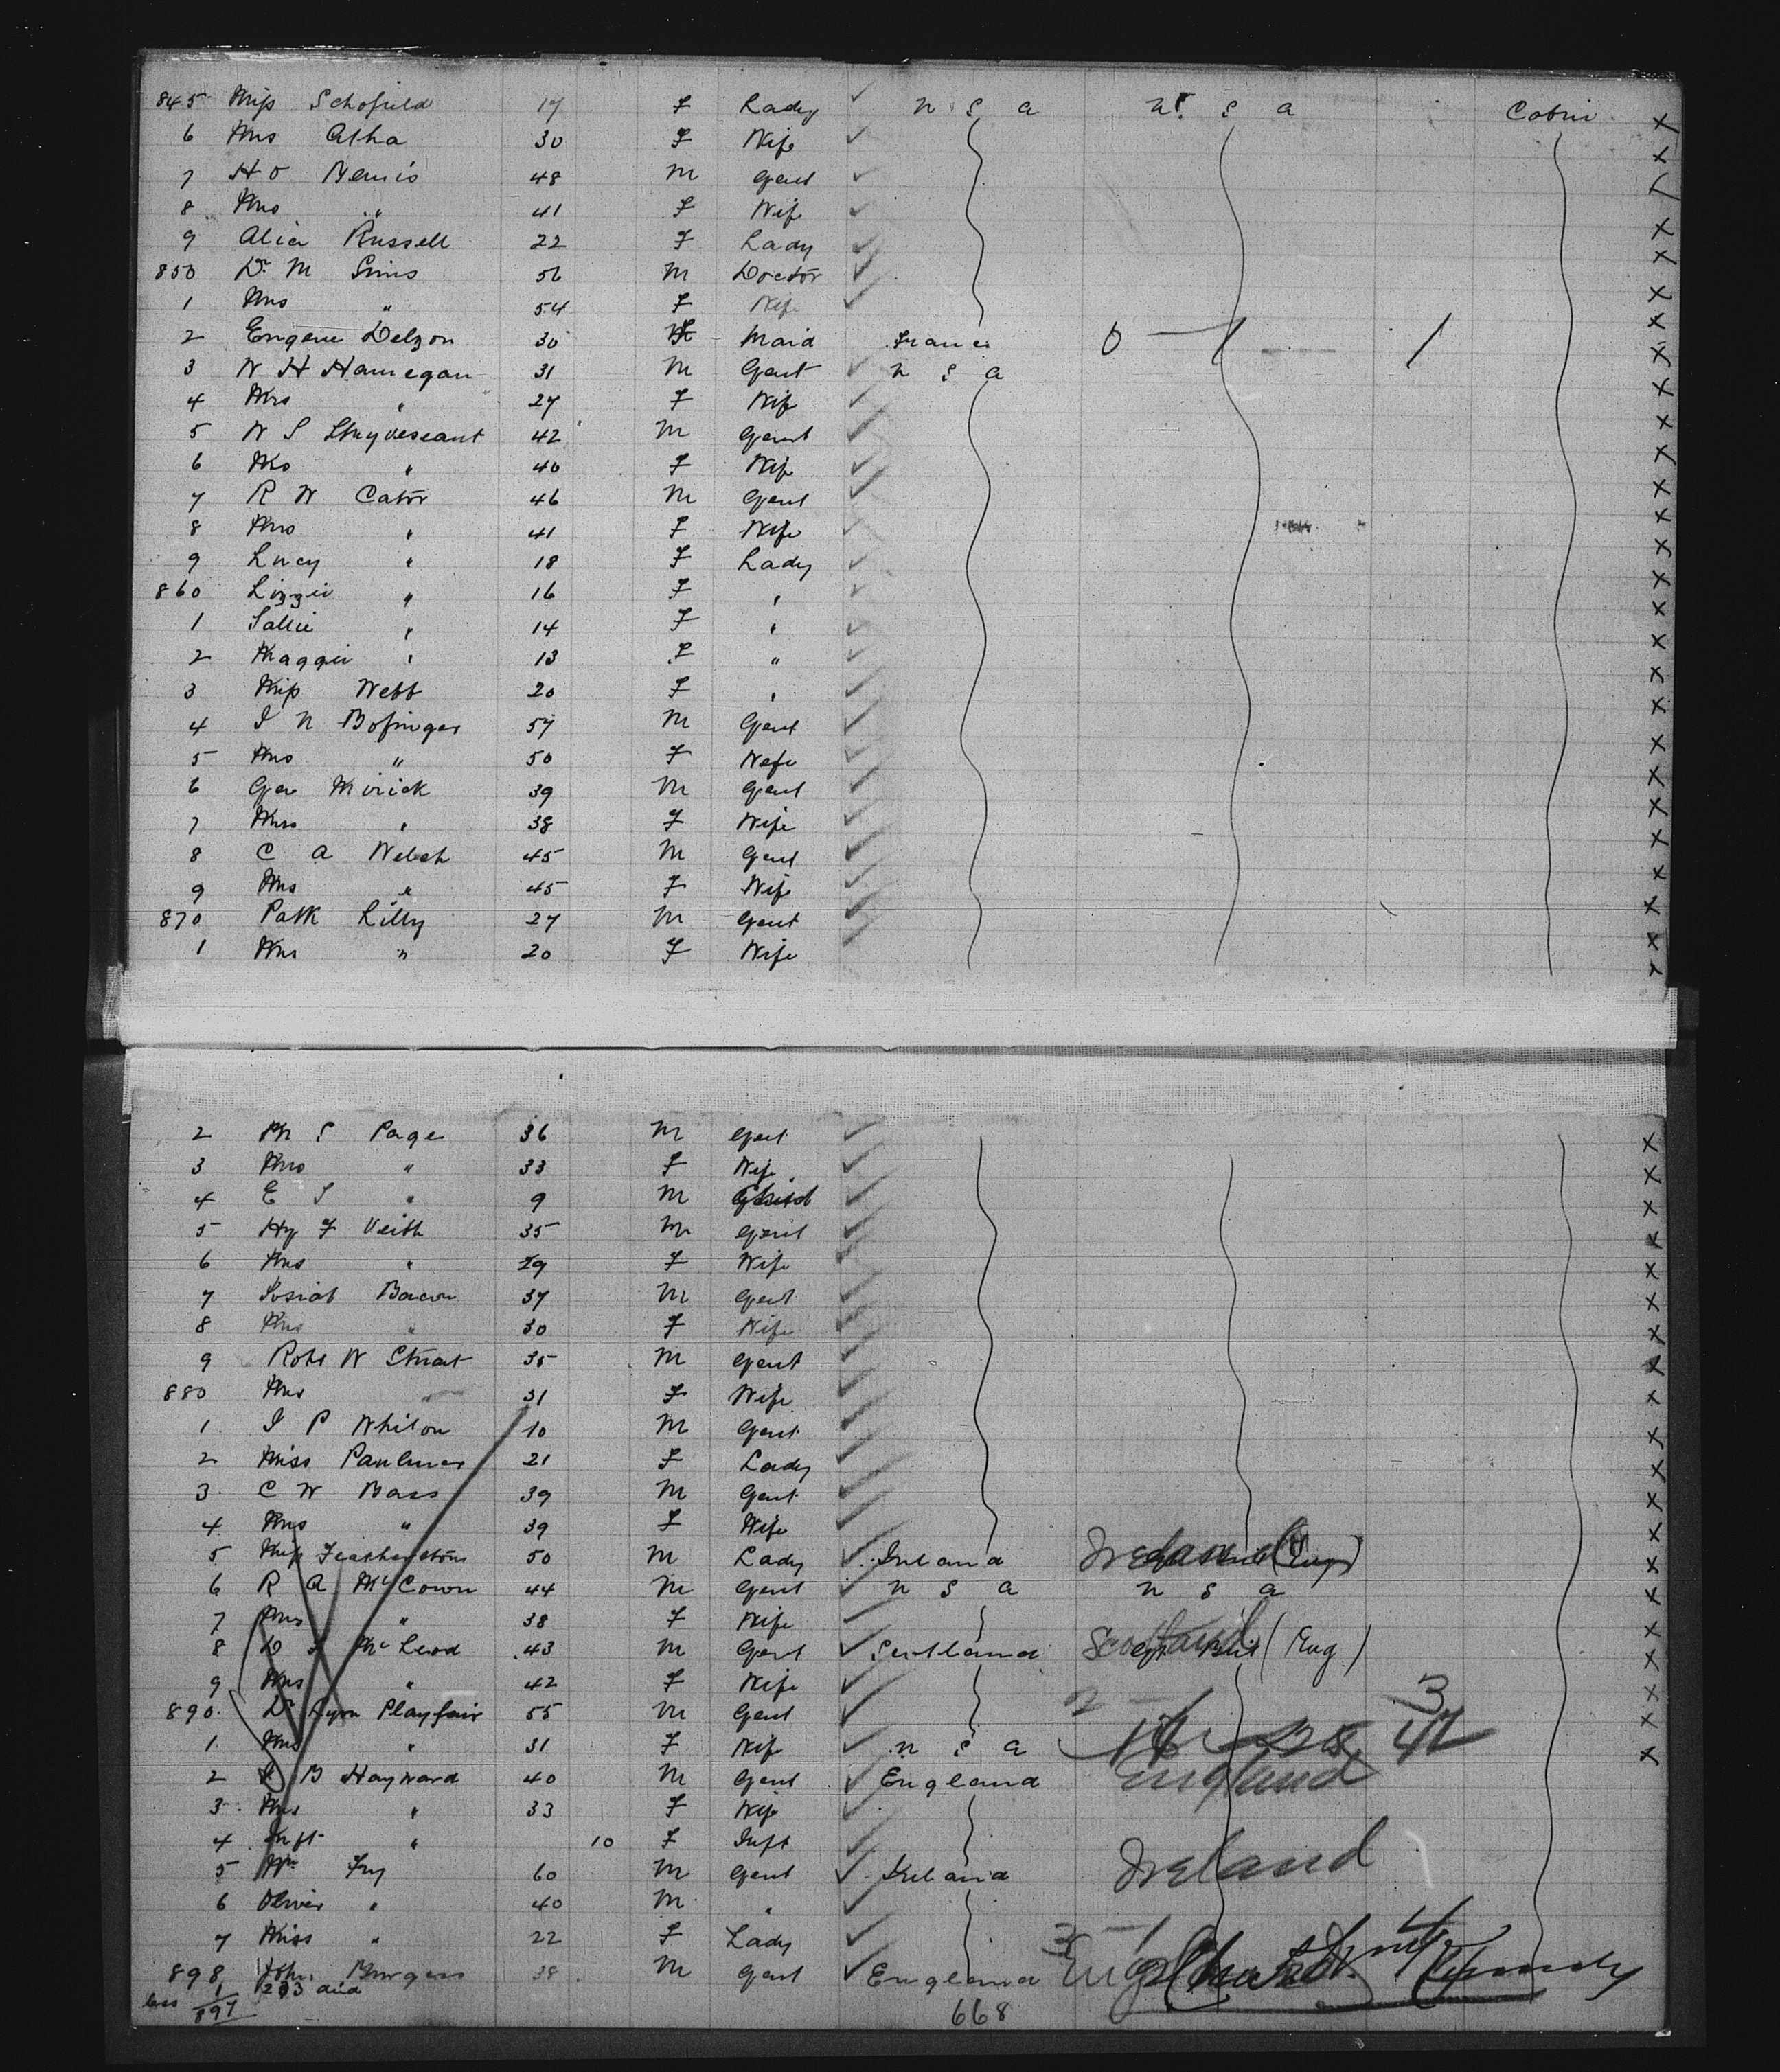 845 Miss Schofield 17 F Lady U S A U S A Cabin X
6 Mrs Atha 30 F Wife X
7 H O Bemis 48 M Gent
8 Mrs " 41 F Wife X
9 Alice Russell 22 F Lady X
850 Dr M Sims 56 M Doctor X
1 Mrs " 54 F Wife X
2 Eugene Delzon 30 F Maid France 0 — 1 — 1 X
3 W H Hannegan 31 M Gent U S A X
4 Mrs " 27 F Wife X
5 W S Stuyvesant 42 M Gent X
6 Mrs " 40 F Wife X
7 R W Cator 46 M Gent X
8 Mrs " 41 F Wife X
9 Lucy " 18 F Lady X
860 Lizzie " 16 F " X
1 Sallie " 14 F " X
2 Maggie " 13 F " X
3 Miss Webb 20 F " X
4 I N Bofinger 57 M Gent X
5 Mrs " 50 F Wife X
6 Geo Mirick 39 M Gent X
7 Mrs " 38 F Wife X
8 C A Welch 45 M Gent X
9 Mrs " 45 F Wife X
870 Patk Lilly 27 M Gent X
1 Mrs " 20 F Wife X
2 M S Page 36 M Gent X
3 Mrs " 33 F Wife X
4 E S " 9 M Child X
5 Hy F Veith 35 M Gent X
6 Mrs " 29 F Wife X
7 Josiah Bacon 37 M Gent X
8 Mrs " 30 F Wife X
9 Robt W Stuart 35 M Gent X
880 Mrs " 31 F Wife X
1 I P Whiton 10 M Gent X
2 Miss 21 F Lady X
3 C W Bass 39 M Gent X
4 Mrs " 39 F Wife X
5 Miss Featherstone 50 M Lady Ireland Ireland (Eng) X
6 R A McCown 44 M Gent U S A U S A X
7 Mrs " 38 F Wife X
8 D McLeod 43 M Gent Scotland Scotland (Eng) X
9 Mrs " 42 F Wife X
890 Dr Lyon Playfair 55 M Gent 2 3 X
1 Mrs " 31 F Wife U S A X
2 B Hayward 40 M Gent England England
3 Mrs " 33 F Wife
4 Inft " 10 F Inft
5 Wm Fry 60 M Gent Ireland Ireland
6 Oliver " 40 M "
7 Miss " 22 F Lady 3 — 1 4
898 John Burgess 38 M Gent England
less 1
897
668